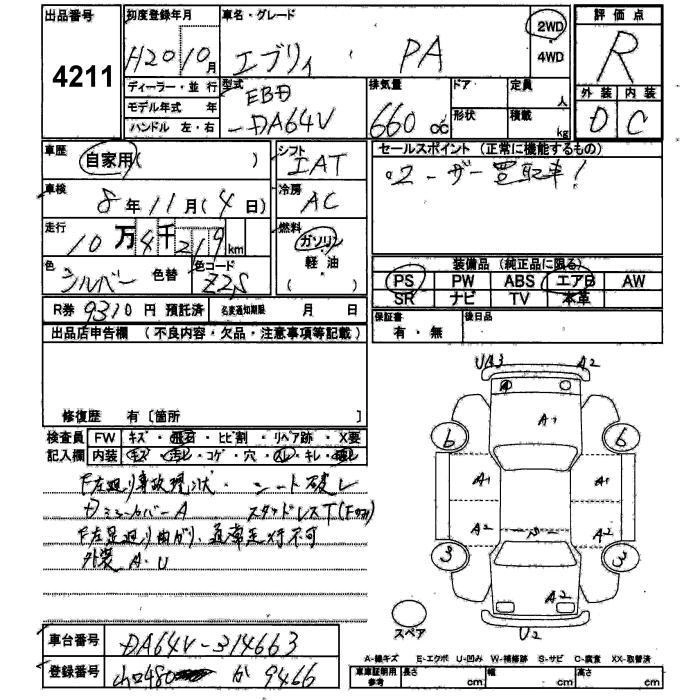 出品番号
4211
初度登録年月
H20 10月
車名・グレード
エブリィ PA
2WD
4WD
評価点
R
外装 内装
D C
ディーラー・並行
モデル年式 年
ハンドル 左・右
型式
EBD
-DA64V
排気量
660 cc
ドア・
形状
定員
人
積載
kg
車歴
自家用( )
シフト
IAT
セールスポイント (正常に機能するもの)
ユーザー買取車!
車検
8年11月(4日)
冷房
AC
走行
10万4千219km
燃料
ガソリン
軽油
( )
色
シルバー 色替
色コード
Z2S
装備品 (純正品に限る)
PS PW ABS エアB AW
SR ナビ TV 本革
R券 9310円 預託済
名変通知期限 月 日
保証書
有・無
後日品
出品店申告欄 (不良内容・欠品・注意事項等記載)
修復歴 有〔箇所 〕
検査員 FW キズ・飛石・ヒビ割・リペア跡・X要
記入欄 内装 キズ・汚レ・コゲ・穴・スレ・キレ・
F左廻り事故現状・シート破レ
スタッドレスT
F左足廻り曲がり、通常走行不可
外装 A・U
UA3 A2
A
A1
6 6
A1 A1
A2 A2
3 3
A2
U2
スペア
車台番号
DA64V-314663
登録番号
480 か 9466
A-線キズ E-エクボ U-凹み W-補修跡 S-サビ C-腐食 XX-取替済
車庫証明用
参考
長さ cm 幅 cm 高さ cm